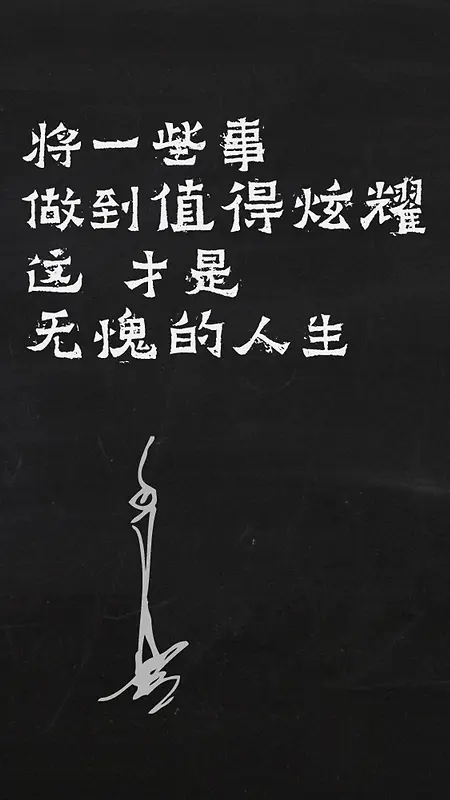 将一些事
做到值得炫耀
这 才是
无愧的人生